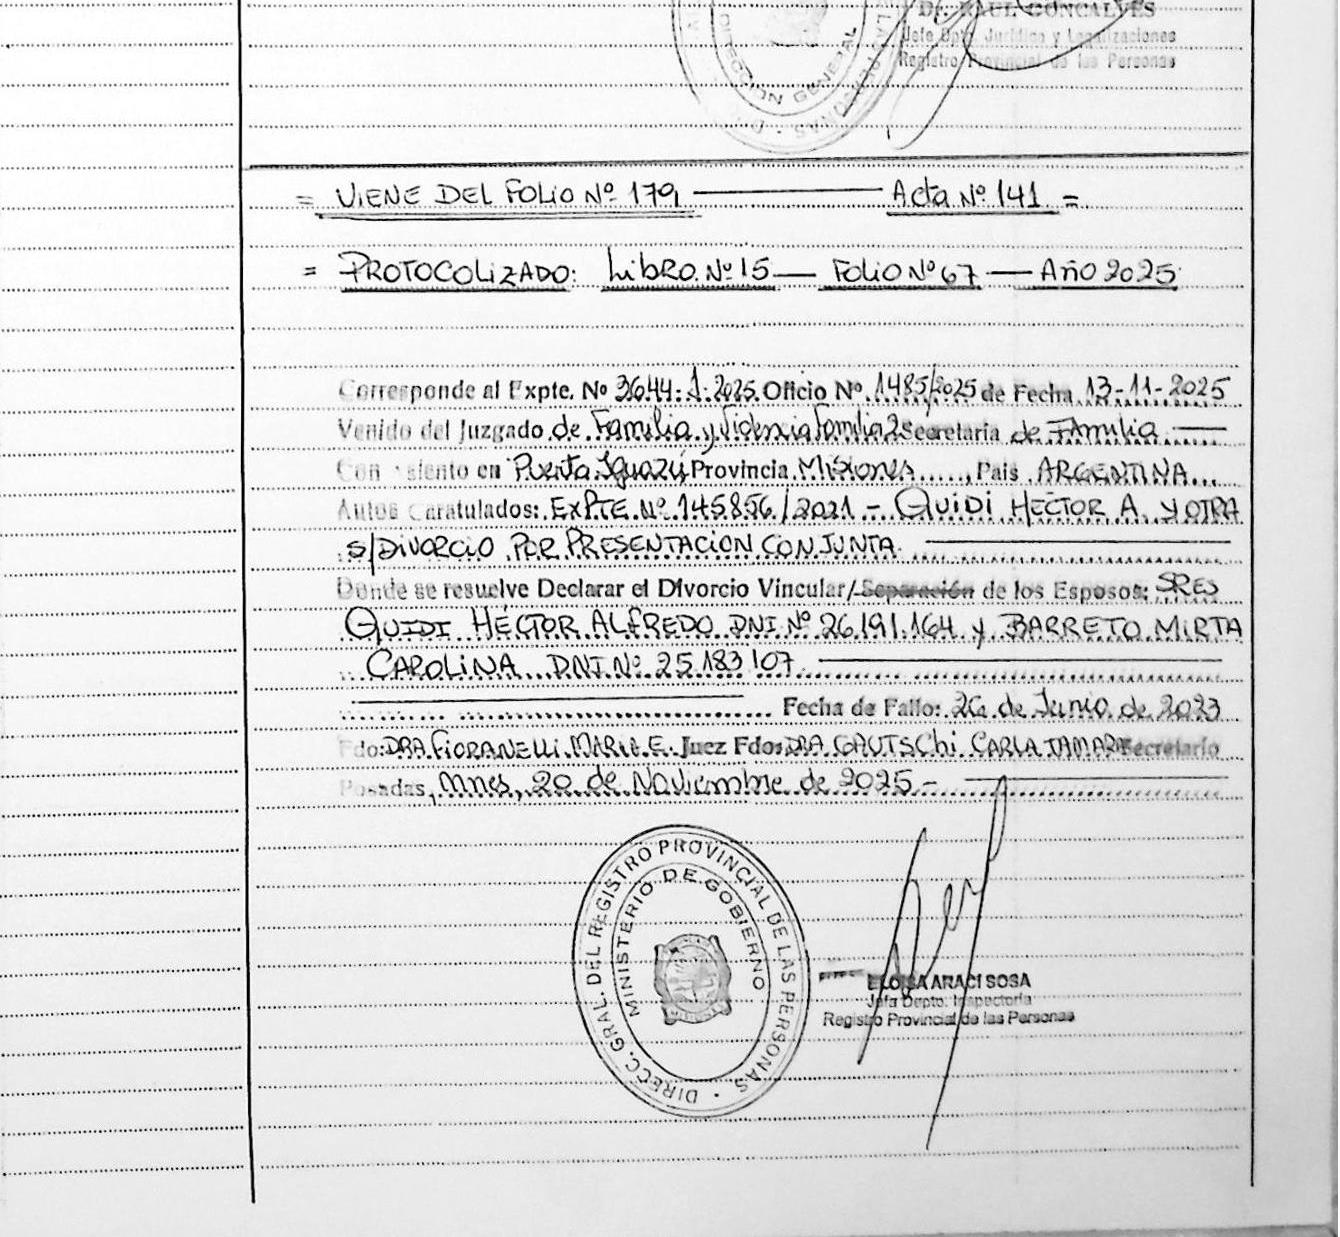 Dr. RAUL GONCALVES
Jefe Dpto. Jurídico y Legalizaciones
Registro Provincial de las Personas
DIRECCION GENERAL
= VIENE DEL FOLIO Nº 179 Acta Nº 141 =
= PROTOCOLIZADO: Libro Nº 15 — FOLIO Nº 67 — Año 2025
Corresponde al Expte. Nº 3644-1-2025 Oficio Nº 1485/2025 de Fecha 13-11-2025
Venido del Juzgado de Familia y Violencia Familia 2 Secretaria de FAMiliA
Con asiento en Puerto Iguazú Provincia Misiones, Pais ARGENTINA
Autos Caratulados: EXPTE Nº 145856/2021 - QUIDI HECTOR A. Y OTRA
s/DIVORCIO POR PRESENTACION CONJUNTA
Donde se resuelve Declarar el Divorcio Vincular/Separación de los Esposos: SRES
QUIDI HÉCTOR ALFREDO DNI Nº 26.191.164 y BARRETO MIRTA
CAROLINA DNI Nº 25.183.107
Fecha de Fallo: 26 de Junio de 2023
Fdo: DRA. FIORANELLI MARIA E. Juez Fdo: DRA. GAUTSCHI CARLA TAMARA Secretario
Posadas, Mnes, 20 de Noviembre de 2025.-
DIRECC. GRAL. DEL REGISTRO PROVINCIAL DE LAS PERSONAS
MINISTERIO DE GOBIERNO
ELOISA ARACI SOSA
Jefa Depto. Inspectoría
Registro Provincial de las Personas